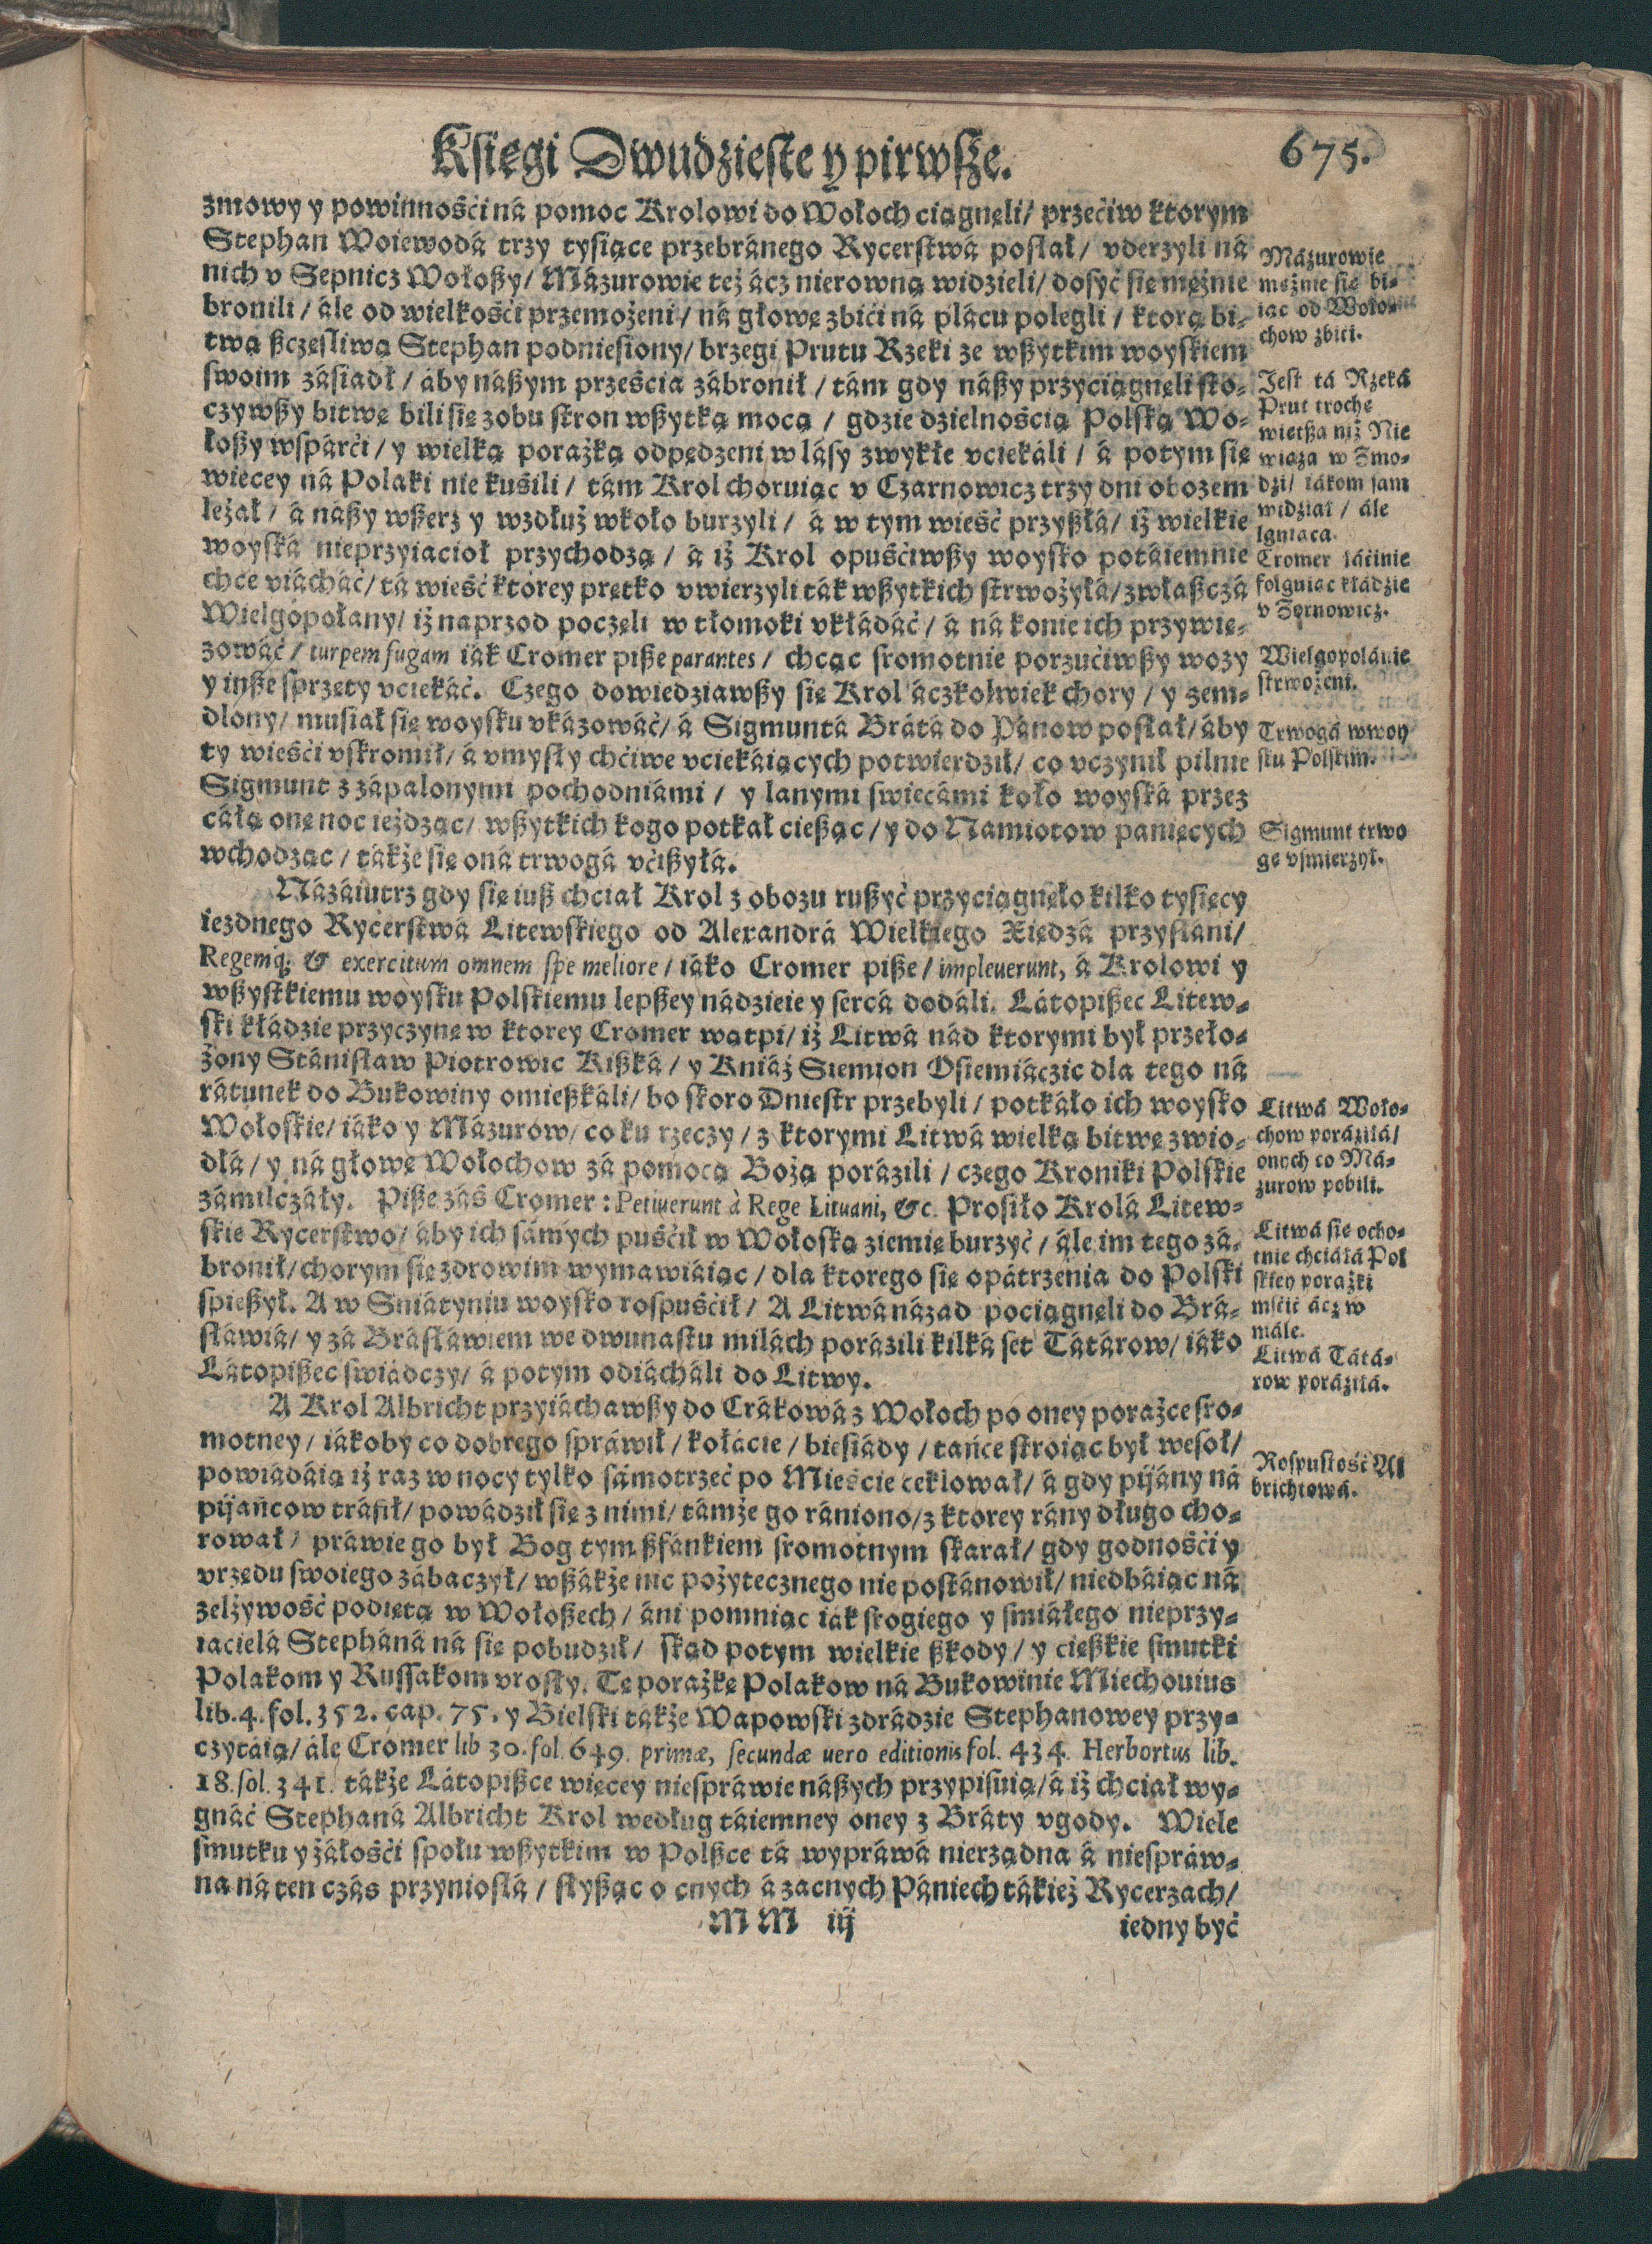 Księgi Dwudzieste y pirwsze. 675.
zmowy y powinnośći ná pomoc Krolowi do Wołoch ciągnęli/ przećiw ktorym
Stephan Woiewodá trzy tysiące przebránego Rycerstwá posłał/ vderzyli ná
nich v Sepnicz Wołoßy/ Mázurowie też ácz nierowną widzieli/ dosyć się mężnie
bronili/ ále od wielkośći przemożeni/ ná głowę zbići ná plácu polegli/ ktorą bi-
twą ßczęsliwą Stephan podniesiony/ brzegi Prutu Rzeki ze wßytkim woyskiem
swoim zásiadł/ áby náßym prześcia zábronił/ tám gdy náßy przyciągnęli sto-
czywßy bitwę bili się zobu stron wßytką mocą/ gdzie dzielnością Polską Wo-
łoßy wspárći/ y wielką porażką odpędzeni w lásy zwykłe vciekáli/ á potym się
więcey ná Polaki nie kuśili/ tám Krol choruiąc v Czarnowicz trzy dni obozem
leżał/ á náßy wßerz y wzdłuż wkoło burzyli/ á w tym wieść przyßłá/ iż wielkie
woyská nieprzyiacioł przychodzą/ á iż Krol opuśćiwßy woysko potáiemnie
chce viácháć/ tá wieść ktorey prętko vwierzyli ták wßytkich strwożyłá/ zwłaßczá
Wielgopołany/ iż naprzod poczęli w tłomoki vkłádáć/ á ná konie ich przywię-
zowáć/ turpem fugam iák Cromer piße parantes/ chcąc sromotnie porzućiwßy wozy
y inße sprzęty vciekáć. Czego dowiedziawßy się Krol áczkolwiek chory/ y zem-
dlony/ musiał się woysku vkázowáć/ á Sigmuntá Brátá do Pánow posłał/ áby
ty wieśći vskromił/ á vmysły chćiwe vciekáiących potwierdził/ co vczynił pilnie
Sigmunt z zápalonymi pochodniámi/ y lanymi swiecámi koło woyská przez
cáłą onę noc ieżdząc/ wßytkich kogo potkał cießąc/ y do Namiotow panięcych
wchodząc/ tákże się oná trwogá vćißyłá.
Názáiutrz gdy się iuß chciał Krol z obozu rußyć przyciągnęło kilko tysięcy
iezdnego Rycerstwá Litewskiego od Alexandrá Wielkiego Xiędzá przysłani/
Regemq; & exercitum omnem spe meliore/ iáko Cromer piße/ impleuerunt, á Krolowi y
wßystkiemu woysku Polskiemu lepßey nádzieie y sercá dodáli. Látopißec Litew-
ski kłádzie przyczynę w ktorey Cromer wątpi/ iż Litwá nád ktorymi był przeło-
żony Stánisław Piotrowic Kißká/ y Kniáż Siemion Osiemiáczic dla tego ná
rátunek do Bukowiny omießkáli/ bo skoro Dniestr przebyli/ potkáło ich woysko
Wołoskie/ iáko y Mázurow/ co ku rzeczy/ z ktorymi Litwá wielką bitwę zwio-
dłá/ y ná głowę Wołochow zá pomocą Bożą porázili/ czego Kroniki Polskie
zámilczáły. Piße záś Cromer: Petiuerunt à Rege Lituani, &c. Prosiło Krolá Litew-
skie Rycerstwo/ áby ich sámych puśćił w Wołoską ziemię burzyć/ ále im tego zá-
bronił/ chorym się zdrowim wymawiáiąc/ dla ktorego się opátrzenia do Polski
spießył. A w Sniátyniu woysko rospuśćił/ A Litwá názad pociągnęli do Brá-
sławiá/ y zá Brásławiem we dwunastu milách porázili kilká set Tátárow/ iáko
Látopißec swiádczy/ á potym odiácháli do Litwy.
A Krol Albricht przyiáchawßy do Crákowá z Wołoch po oney porażce sro-
motney/ iákoby co dobrego spráwił/ kołácie/ biesiády/ tańce stroiąc był wesoł/
powiádáią iż raz w nocy tylko sámotrzeć po Mieście ceklował/ á gdy pijány ná
pijańcow tráfił/ powádził się z nimi/ támże go rániono/ z ktorey rány długo cho-
rował/ práwie go był Bog tym ßfánkiem sromotnym skarał/ gdy godnośći y
vrzędu swoiego zábaczył/ wßákże nic pożytecznego nie postánowił/ niedbáiąc ná
zelżywość podiętą w Wołoßech/ áni pomniąc iák srogiego y smiáłego nieprzy-
iacielá Stepháná ná się pobudził/ skąd potym wielkie ßkody/ y cięßkie smutki
Polakom y Russakom vrosły. Tę porażkę Polakow ná Bukowinie Miechouius
lib. 4. fol. 352. cap. 75. y Bielski tákże Wapowski zdrádzie Stephanowey przy-
czytáią/ ále Cromer lib 30. fol. 649. primæ, secundæ uero editionis fol. 434. Herbortus lib.
18. fol. 341. tákże Látopißce więcey niespráwie náßych przypisuią/ á iż chciał wy-
gnáć Stephaná Albricht Krol według táiemney oney z Bráty vgody. Wiele
smutku y żáłośći społu wßytkim w Polßce tá wypráwá nierządna á niespráw-
na ná ten czás przyniosłá/ słyßąc o cnych á zacnych Pániech tákież Rycerzach/
MM iij iedny być
Mázurowie
mężnie się bi-
iąc od Woło-
chow zbići.
Jest tá Rzeká
Prut trochę
wietßa niż Nie
wiaża w Żmo-
dzi/ iákom sam
widział/ ále
lgniąca.
Cromer łáćinie
folguiąc kłádzie
v Żernowicz.
Wielgopolánie
strwożeni.
Trwogá w woy
sku Polskim.
Sigmunt trwo
gę vśmierzył.
Litwá Woło-
chow poráziłá/
onych co Má-
zurow pobili.
Litwá się ocho-
tnie chciáłá Pol
skiey porażki
mśćić ácz w
mále.
Litwá Tátá-
row poráziłá.
Rospustość Al
brichtowá.